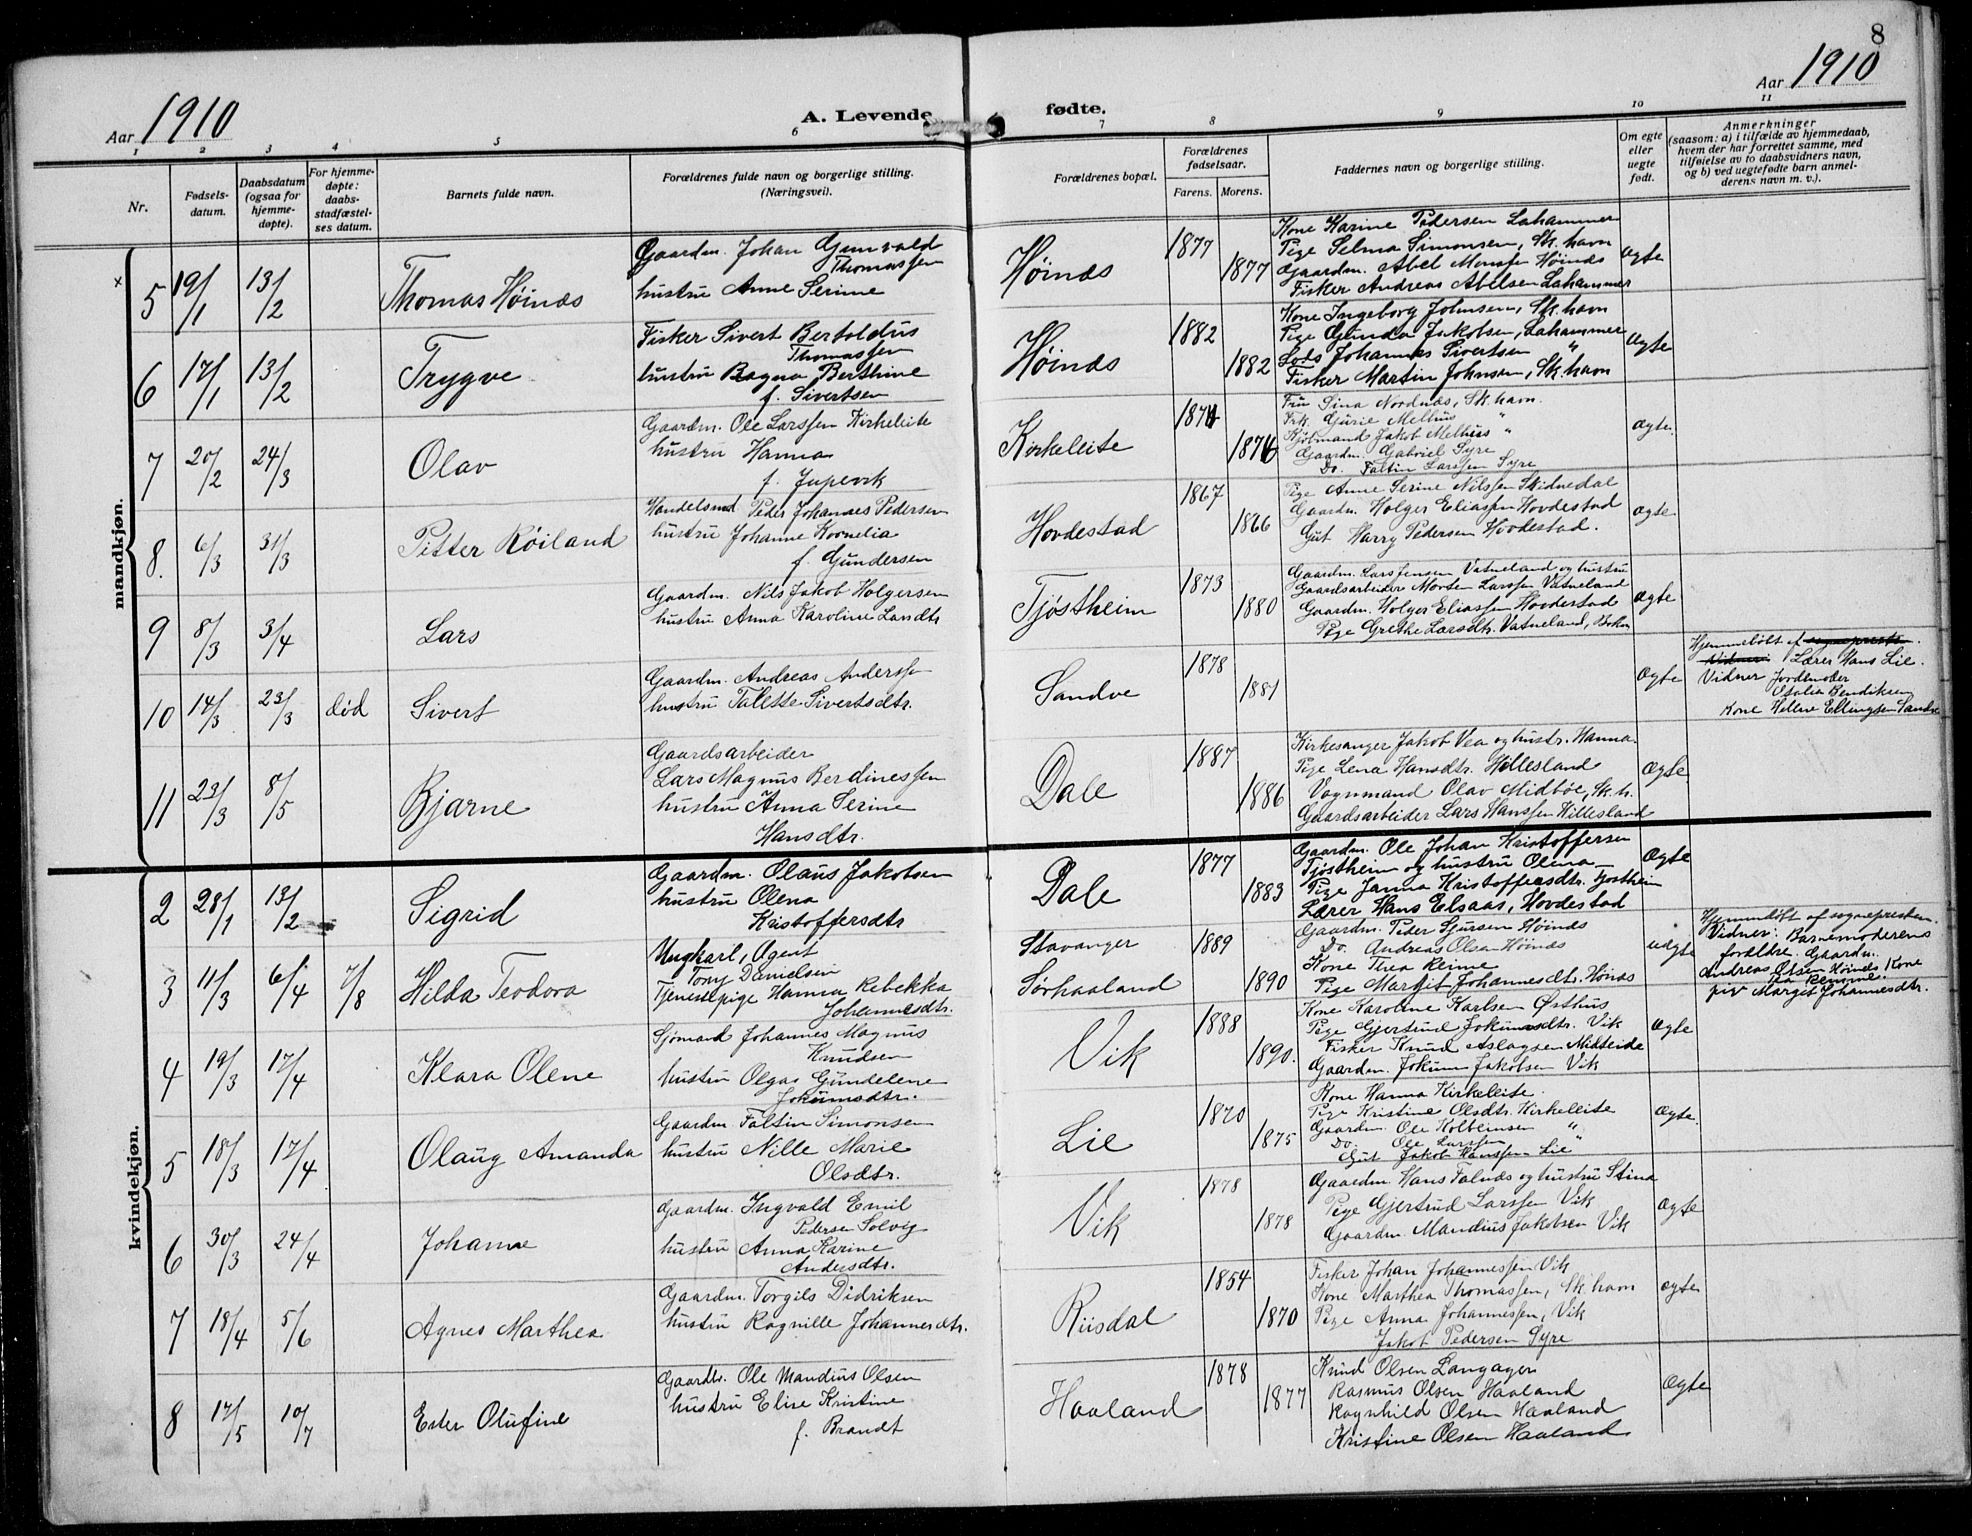 8
Aar 1910
Aar 1910
A. Levende fødte.
1 2 3 4 5 6 7 8 9 10 11
Nr.
Fødsels-
datum.
Daabsdatum
(ogsaa for
hjemme-
døpte).
For hjemme-
døpte:
daabs-
stadfæstel-
ses datum.
Barnets fulde navn.
Forældrenes fulde navn og borgerlige stilling.
(Næringsvei).
Forældrenes bopæl.
Forældrenes
fødselsaar.
Farens. Morens.
Faddernes navn og borgerlige stilling.
Om egte
eller
uegte
født.
Anmerkninger
(saasom: a) i tilfælde av hjemmedaab,
hvem der har forrettet samme, med
tilføielse av to daabsvidners navn,
og b) ved uegtefødte barn anmel-
derens navn m. v.).
mandkjøn.
5 19/1 13/2 Thomas Høinæs
Gaardm. Johan Gunvald
Thomassen
hustru Anne Serine
Høinæs 1877 1877
Kone Karine Pedersen Lahammer
Pige Selma Simonsen, Sk.havn
Gaardm. Abel Monsen Høinæs
Fisker Andreas Abelsen Lahammer
Ægte
6 17/1 13/2 Trygve
Fisker Sivert Bertoldus
Thomassen
hustru Ragna Berthine
f. Sivertsen
Høinæs 1882 1882
Kone Ingeborg Johnsen, Sk.havn
Pige Gunda Jakobsen, Lahammer
Lods Johannes Sivertsen "
Fisker Martin Johnsen, Sk.havn
Ægte
7 20/2 24/3 Olav
Gaardm. Ole Larssen Kirkeleite
hustru Hanna
f. Jupevik
Kirkeleite 1874 1876
Fru Sina Nordnæs, Sk.havn.
Frk. Gurie Melhus "
Kjøbmand Jakob Melhus "
Gaardm. Gabriel Syre
Do. Faltin Larssen Syre
Ægte.
8. 6/3 31/3 Pitter Røiland
Handelsmd Peder Johannes Pedersen
hustru Johanne Kornelia
f. Gundersen
Hovdestad 1867 1866
Pige Anne Serine Nilssen Skidnedal
Gaardm. Holger Eliassen Hovdestad
Gut Harry Pedersen Hovdestad.
Ægte
9 8/3 3/4 Lars
Gaardm. Nils Jakob Holgersen
hustru Anna Karoline Larsdtr
Tjøstheim 1873 1880
Gaardm. Lars Jensen Vatneland og hustru
Gaardsarbeider Morten Larssen Vatneland
Gaardm. Holger Eliassen Hovdestad
Pige Grethe Larsdtr. Vatneland, Bokn
Ægte
10 14/3 23/3 død Sivert
Gaardm. Andreas Anderssen
hustru Talette Sivertsdtr.
Sandve 1878 1881
Ægte
Hjemmedøbt af sogneprest.
Vidner: Lærer Hans Lie.
Vidner Jordmoder
Italia Bendiksen
Kone Helene Ellingsen Sandve
11 23/3 8/5 Bjarne
Gaardsarbeider
Lars Magnus Berdinessen
hustru Anna Serine
Hansdtr.
Dale 1887 1886
Kirkesanger Jakob Vea og hustr. Hanna.
Pige Lena Hansdtr. Hillesland
Vognmand Olav Midbøe, Sk.h.
Gaardsarbeider Lars Hanssen Hillesland
Ægte
kvindekjøn.
2 28/1 13/2 Sigrid
Gaardm. Olaus Jakobsen
hustru Olena
Kristoffersdtr
Dale 1877 1883
Gaardm. Ole Johan Kristoffersen
Tjøstheim og hustru Olena
Pige Janna Kristoffersdtr. Tjostheim
Lærer Hans Elsaas, Hovdestad
Ægte
3 11/3 6/4 7/8 Hilda Teodora
Ungkarl, Agent
Tony Danielsen
Tjenestepige Hanna Rebekka
Johannesdtr.
Stavanger
Sørhaaland
1889 1890
Gaardm. Peder Sjursen Høinæs
Do. Andreas Olsen Høinæs
Kone Thea Reime
Pige Margit Johannesdtr. Høinæs
uægte
Hjemmedøbt af sognepresten.
Vidner: Barnemoderens
forældre. Gaardm.
Andreas Olsen Høinæs Kone
Pige Margit Johannesdtr.
4 19/3 17/4 Klara Olene
Sjømand Johannes Magnus
Knudsen
hustru Olgas Gundelene
Jokumsdtr.
Vik 1888 1890.
Kone Karoline Karlsen Østhus
Pige Gjertrud Jokumsdtr. Vik
Fisker Knud Aslagsen Midteide
Gaardm. Jokum Jakobsen Vik
Ægte
5 18/3 17/4 Olaug Amanda
Gaardm. Faltin Simonsen
hustru Nille Marie
Olsdtr.
Lie 1870 1875
Kone Hanna Kirkeleite.
Pige Kristine Olsdtr. Kirkeleite
Gaardm. Ole Kolbeinsen "
Do. Ole Larssen "
Gut Jakob Hanssen Lie
Ægte.
6 30/3 24/4 Johanne
Gaardm. Ingvald Emil
Pedersen Solvig
hustru Anna Karine
Andersdtr.
Vik 1878 1878
Gaardm. Hans Falnæs og hustru Stina
Pige Gjertrud Larssen Vik
Gaardm. Mandius Jakobsen Vik
Ægte
7 18/4 5/6 Agnes Marthea
Gaardm. Torgils Didriksen
hustru Ragnille Johannesdtr.
Riisdal 1854 1870
Fisker Johan Johannessen Vik
Kone Marthea Thomassen, Sk.havn
Pige Anna Johannessen, Vik
Jakob Pedersen Syre
ægte
8 17/5 10/7 Ester Olufine
Gaardbr. Ole Mandius Olsen
hustru Elise Kristine
f. Brandt
Haaland 1878 1877
Knud Olsen Langager
Rasmus Olsen Haaland
Ragnhild Olsen Haaland
Kristine Olsen Haaland
Ægte